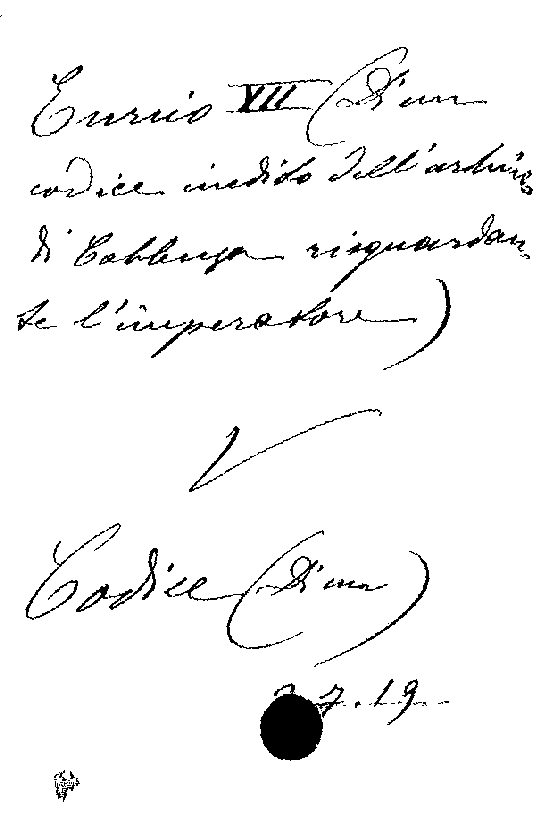 Enrico VII (Di un
codice inedito dell'archivio
di Cobbenga risguardan-
te l'imperatore)
V
Codice (Di un)
2.7.19.